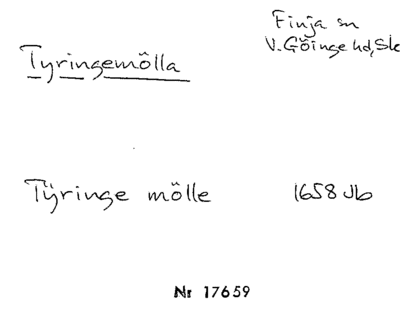 Finja sn
V. Göinge hd, Sk
Tyringemölla
Tÿringe mölle 1658 Jb
Nr 17659